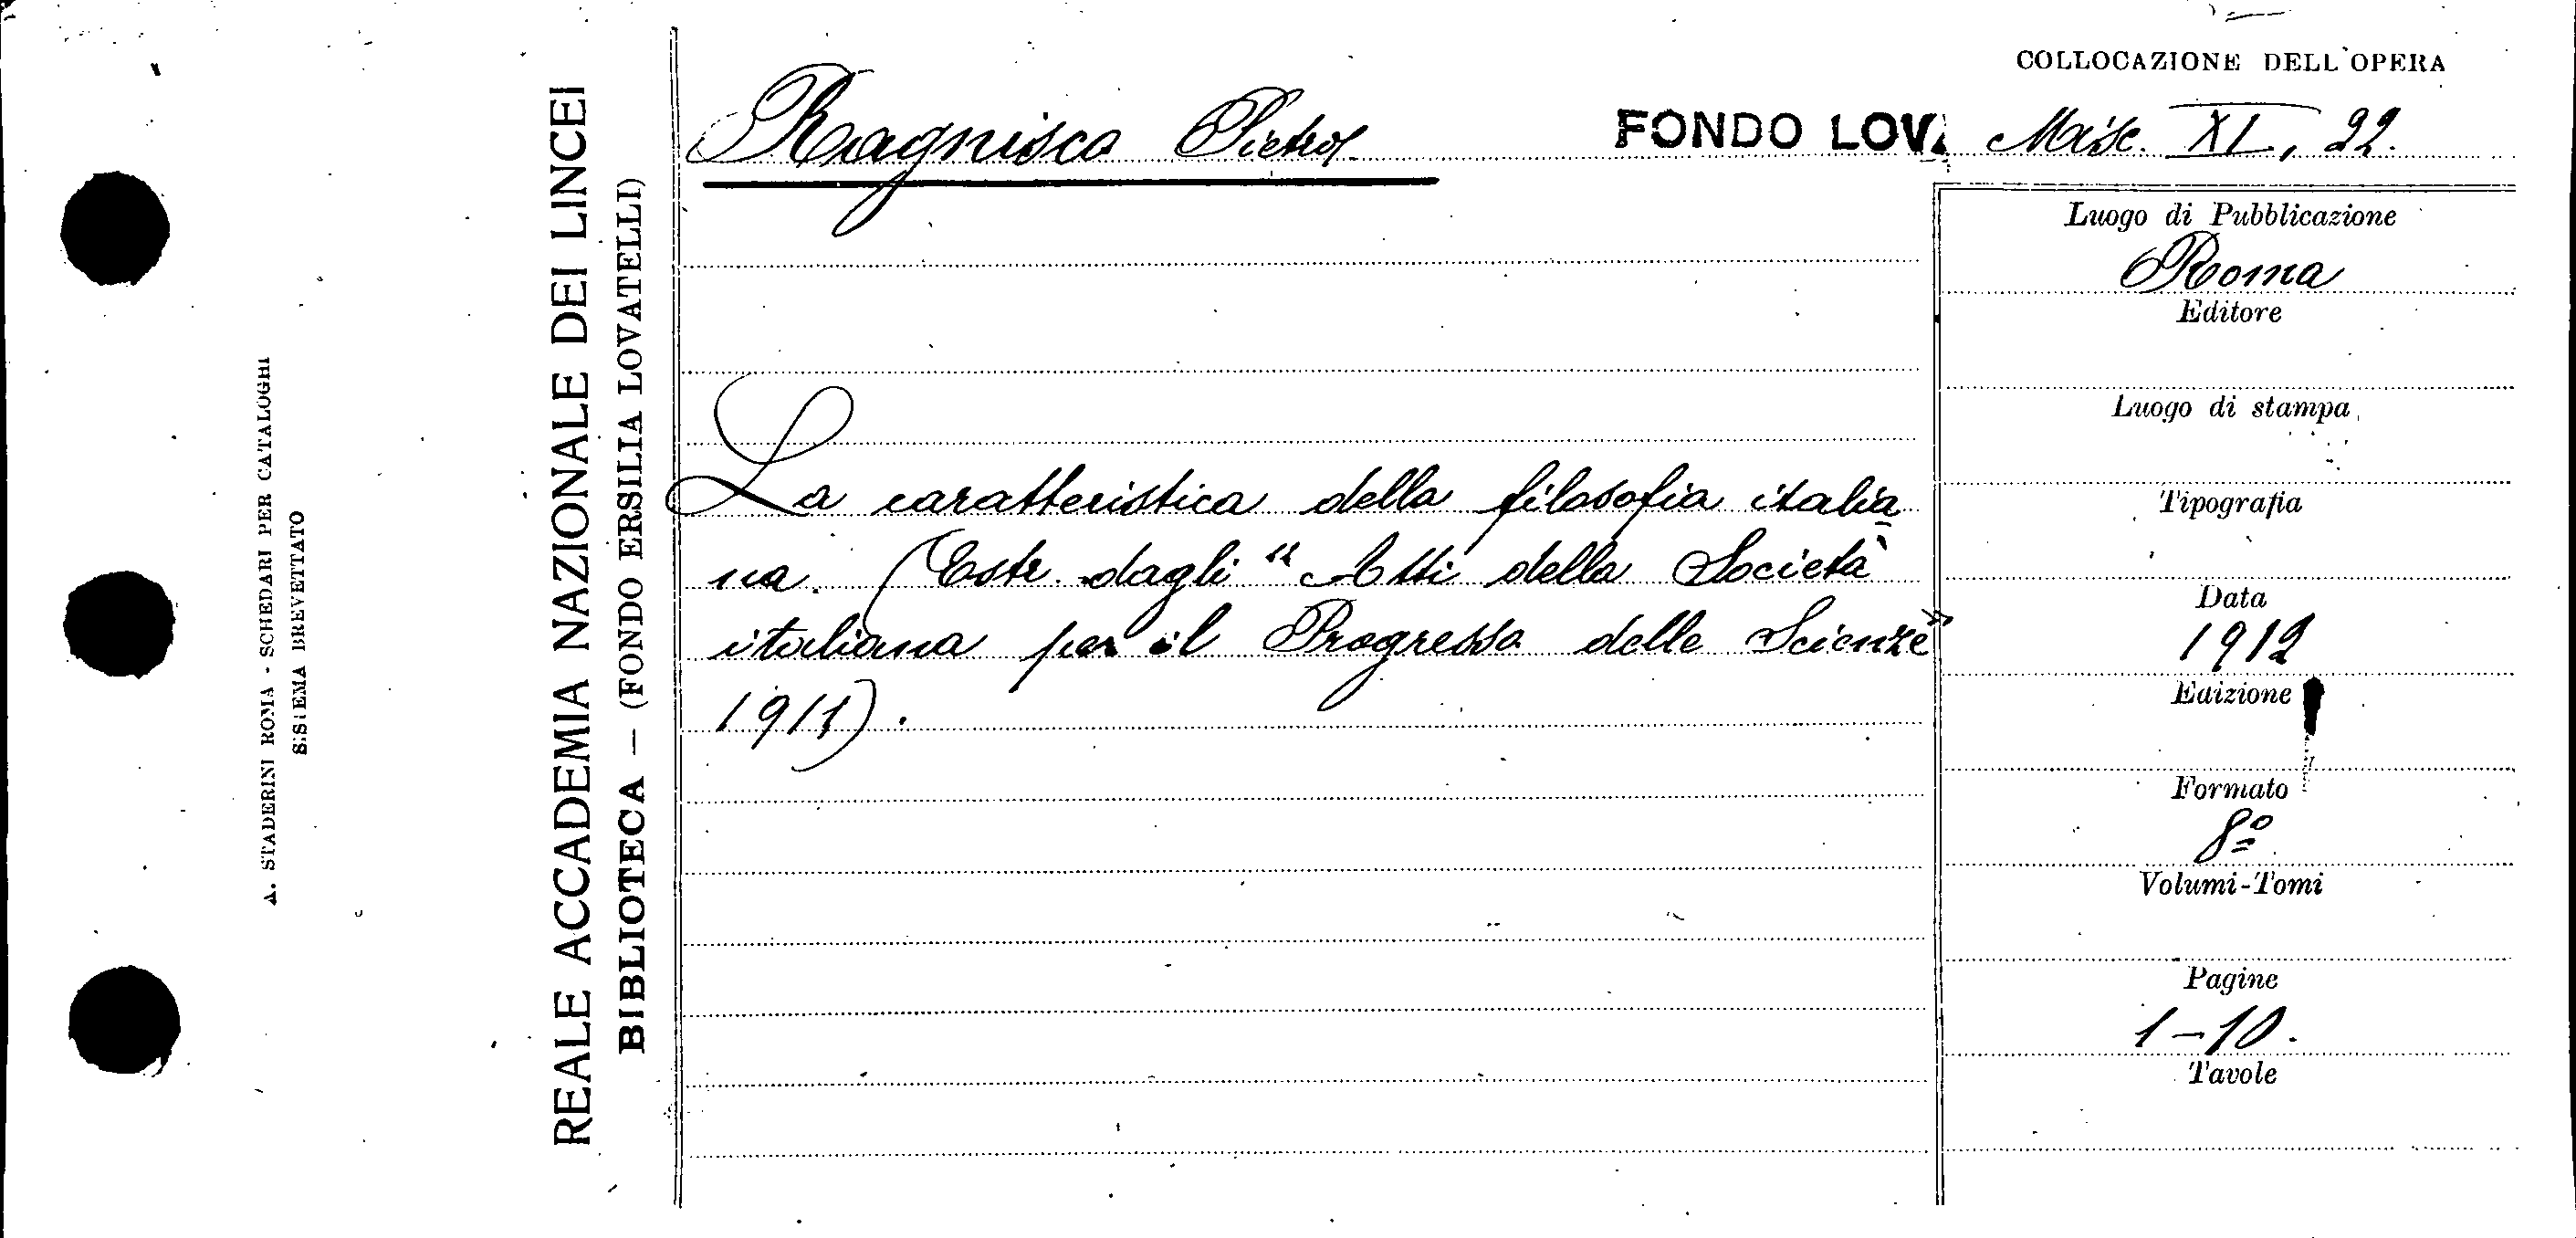 A. STADERINI ROMA - SCHEDARI PER CATALOGHI
SISTEMA BREVETTATO
REALE ACCADEMIA NAZIONALE DEI LINCEI
BIBLIOTECA — (FONDO ERSILIA LOVATELLI)
Ragnisco Pietro
La caratteristica della filosofia italia
na. (Estr. dagli "Atti della Società
italiana per il Progresso delle Scienze"
1911).
COLLOCAZIONE DELL'OPERA
FONDO LOV. Misc. XL, 22.
Luogo di Pubblicazione
Roma
Editore
Luogo di stampa
Tipografia
Data
1912
Edizione
Formato
8º
Volumi-Tomi
Pagine
1-10.
Tavole